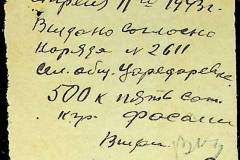 Апреля 11го 1943г.
Видано согласно
наряда № 2611
сел. общ. Царедаревк.
500 к пятьсот.
кгр. фасоли